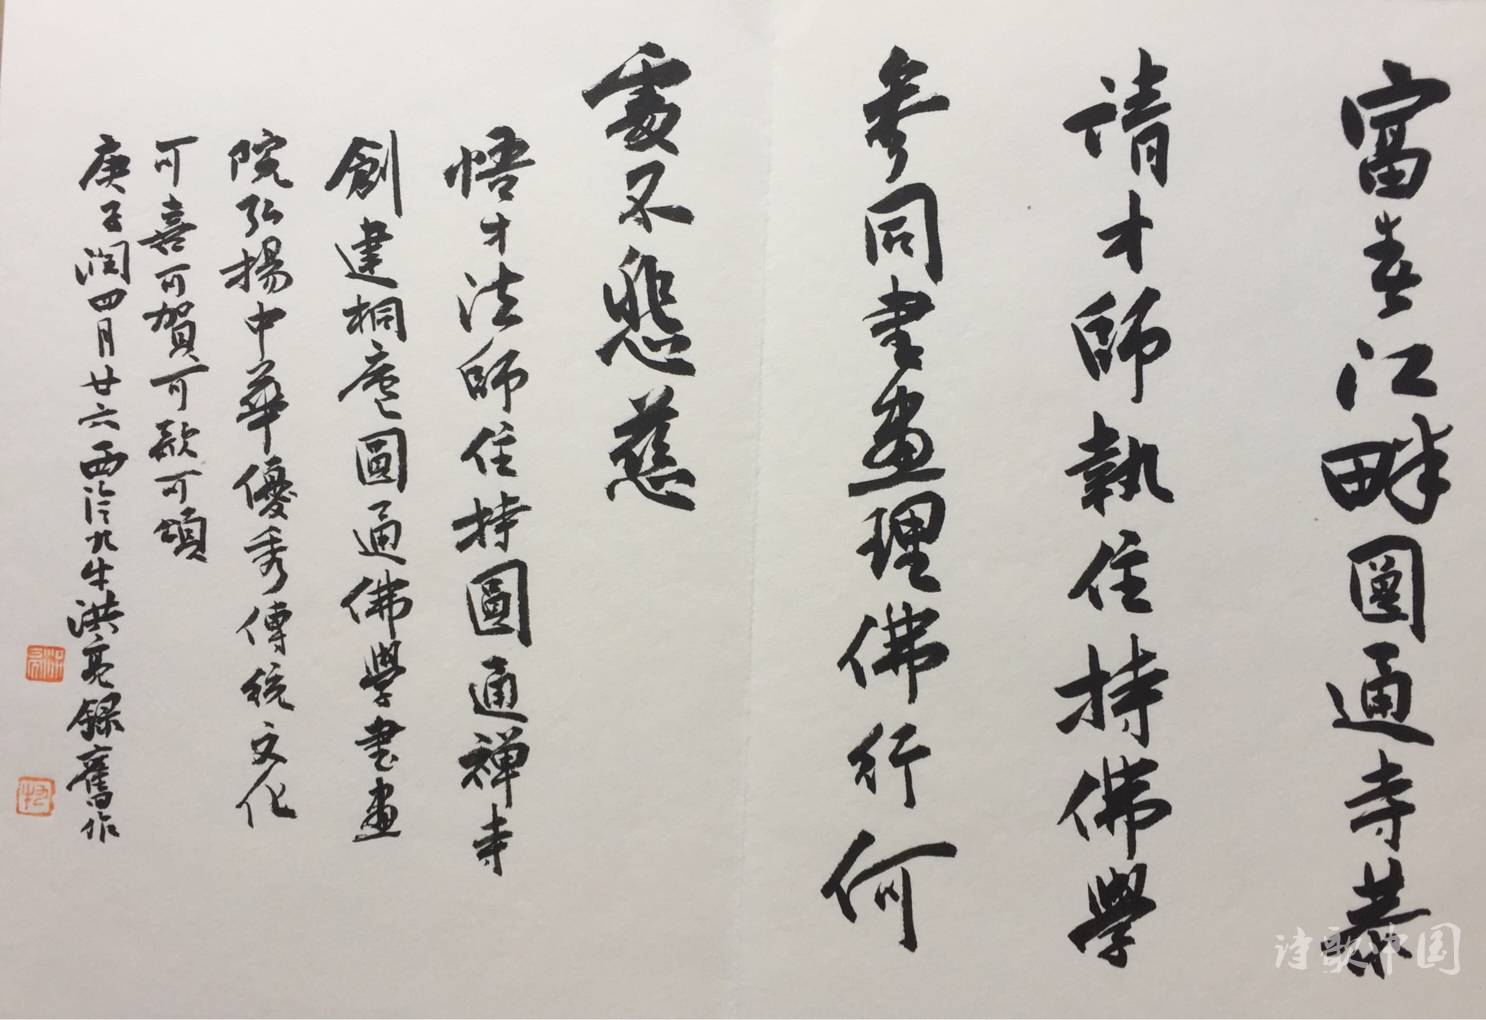 富春江畔圓通寺恭
請才師執住持佛學
參同書畫理佛行何
處不悲慈
悟才法師住持圓通禪寺
創建桐廬圓通佛學書畫
院弘揚中華優秀傳統文化
可喜可賀可歌可頌
庚子閏四月廿六西泠九牛洪亮錄舊作
诗歌中国